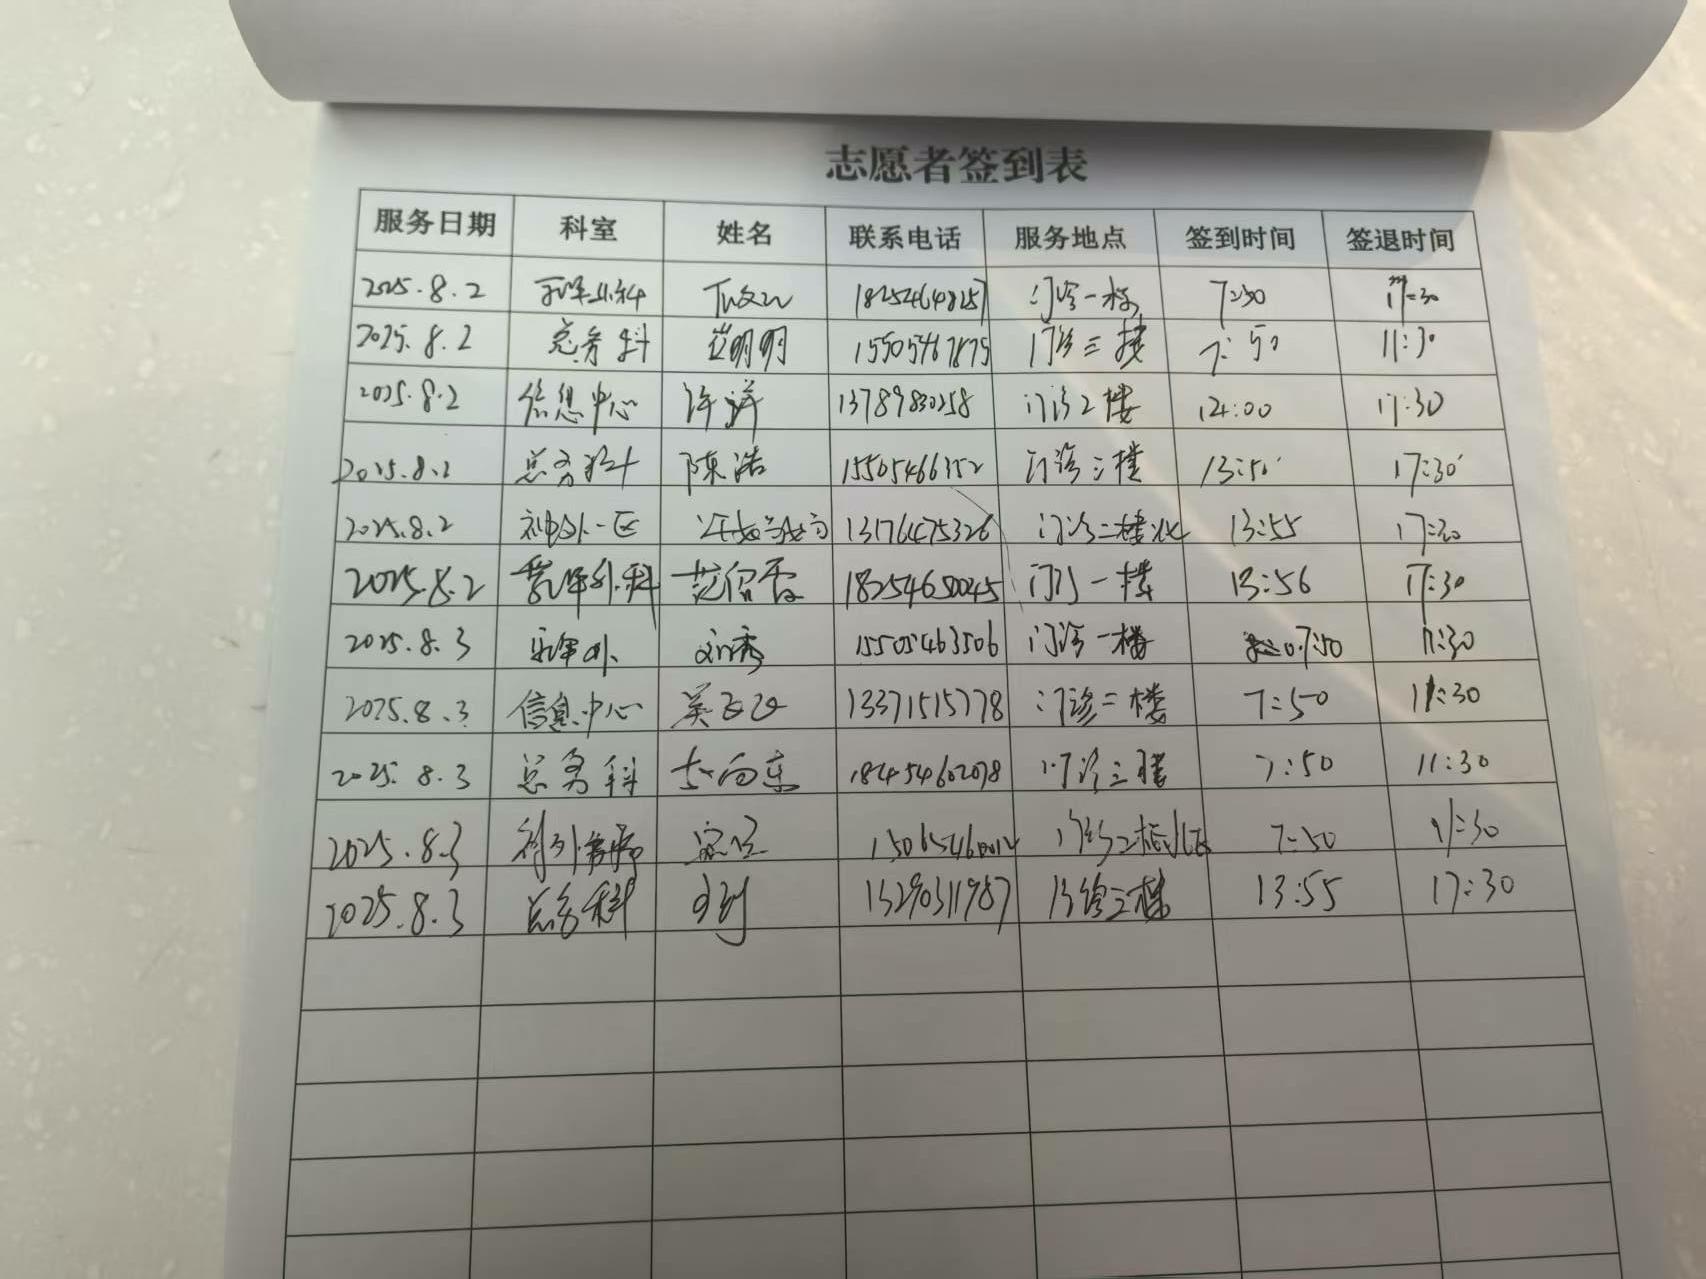 志愿者签到表
服务日期 科室 姓名 联系电话 服务地点 签到时间 签退时间
2025.8.2 18254648257 门诊一楼 7:50 11:30
2025.8.2 总务科 明明 15505467875 门诊三楼 7:50 11:30
2025.8.2 信息中心 许洋 13789830258 门诊2楼 14:00 17:30
2025.8.2 总务科 陈浩 15505466352 门诊三楼 13:50 17:30
2025.8.2 神外一区 13176475326 门诊二楼北 13:55 17:30
2025.8.2 外科 范 18254650045 门诊一楼 13:56 17:30
2025.8.3 刘秀 15505463506 门诊一楼 7:50 11:30
2025.8.3 信息中心 吴 13371515778 门诊二楼 7:50 11:30
2025.8.3 总务科 向东 门诊三楼 7:50 11:30
2025.8.3 7:50 11:30
2025.8.3 总务科 13290311987 门诊三楼 13:55 17:30